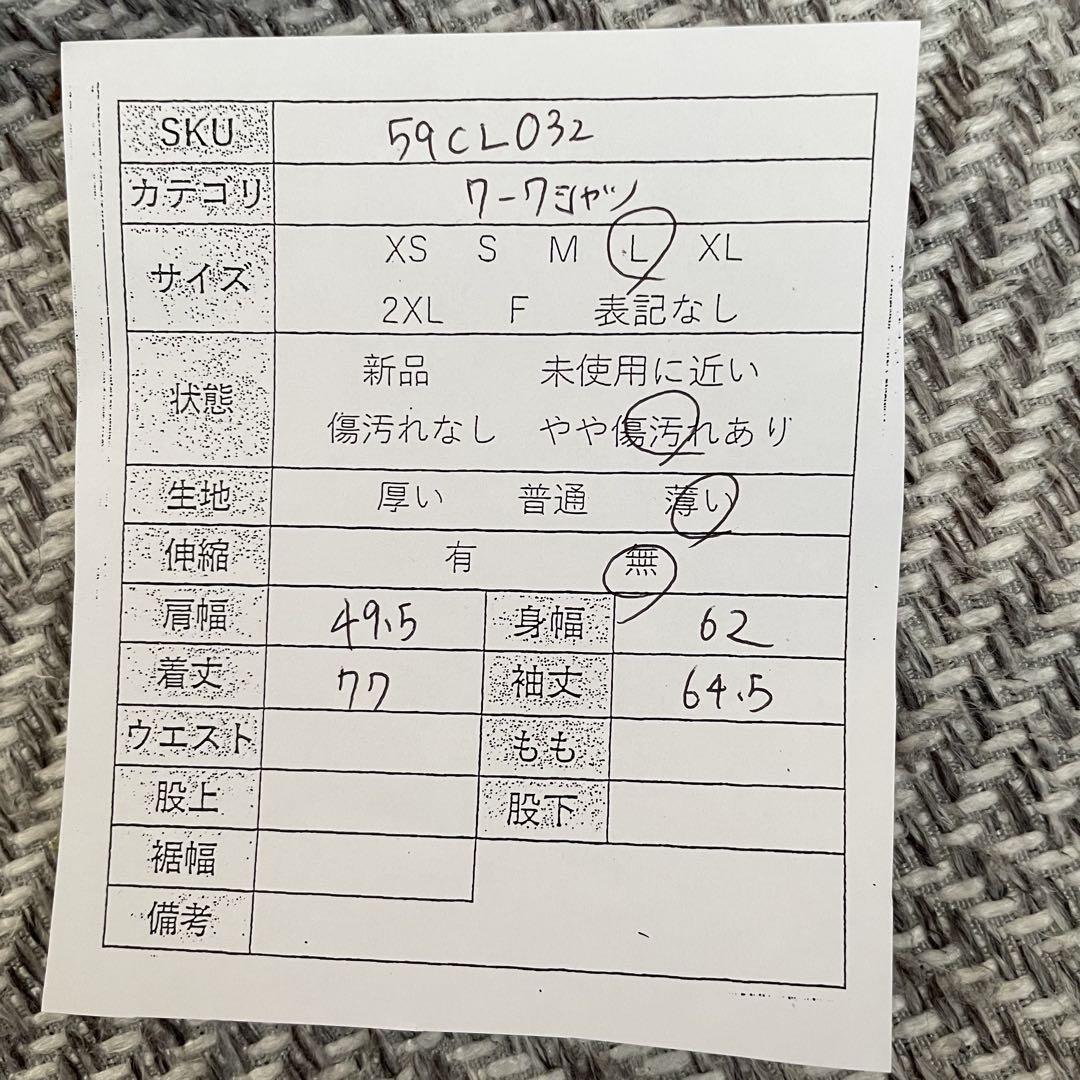 SKU 59CL032
カテゴリ ワークシャツ
サイズ XS S M L XL
2XL F 表記なし
状態 新品 未使用に近い
傷汚れなし やや傷汚れあり
生地 厚い 普通 薄い
伸縮 有 無
肩幅 49.5 身幅 62
着丈 77 袖丈 64.5
ウエスト もも
股上 股下
裾幅
備考